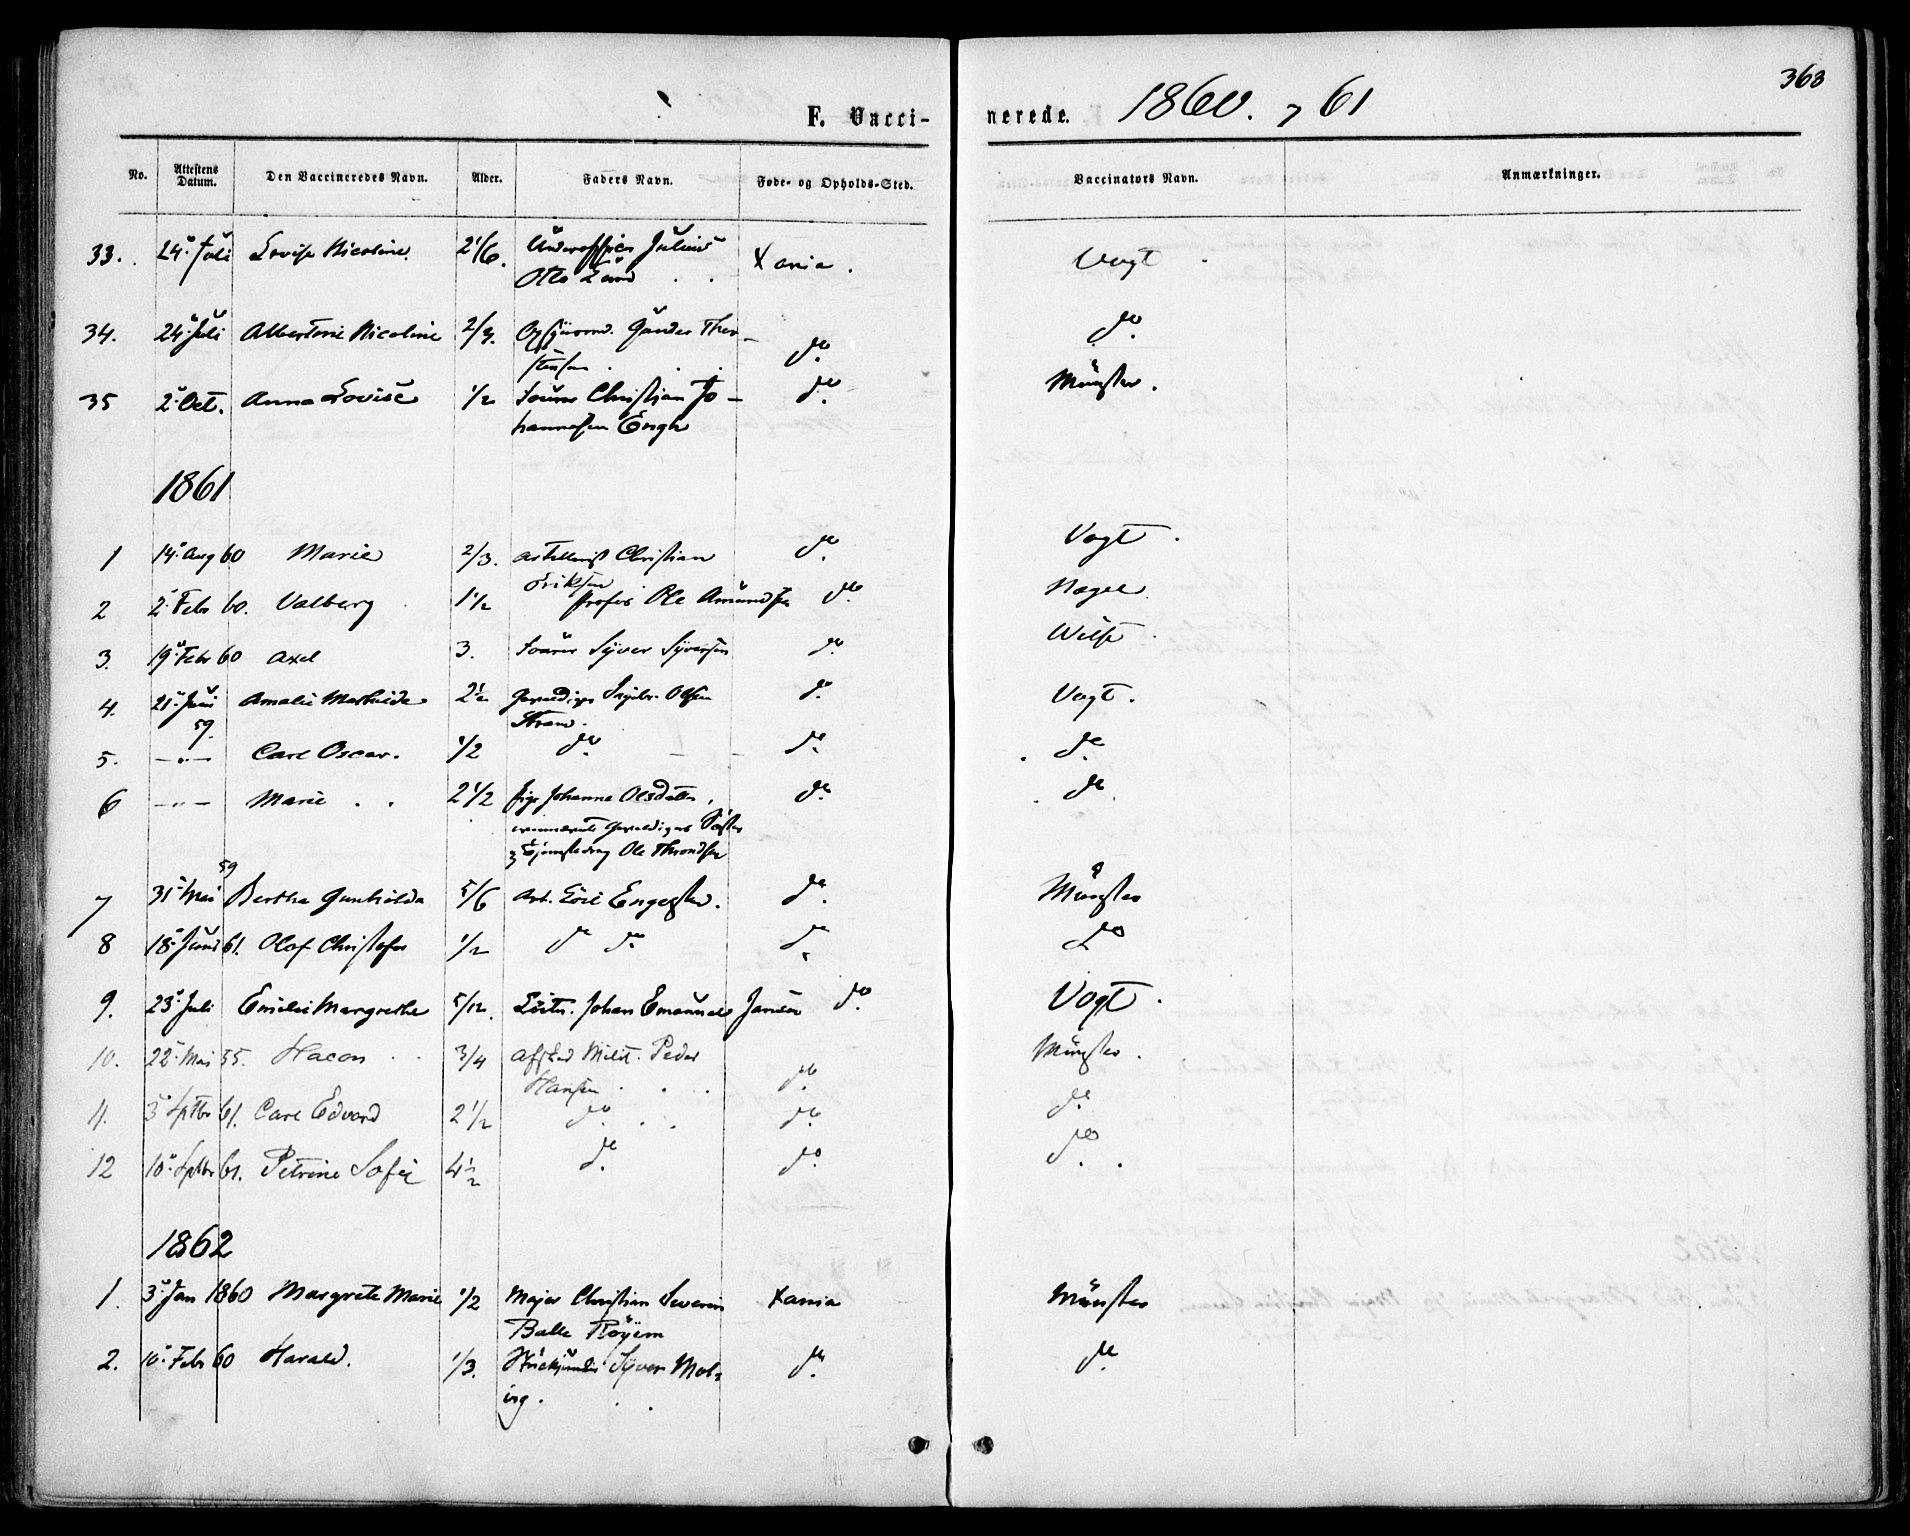 368
F. Vacci- nerede. 1860. 61
No. Attestens Datum. Den Vaccineredes Navn. Alder. Faders Navn. Føde- og Opholds-Sted. Vaccinators Navn. Anmærkninger.
33. 24. Juli Lovise Nicoline 2 1/6. Underofficer Julius Xania. Vogt
Otto Lund
34. 24. Juli Albertine Nicoline 2/3. Gunder Thor- do. do.
stensen
35 2. Oct. Anna Lovise 1/2 Christian Jo- do. Münster.
hannesen Engh
1861
1 14. Aug 60 Marie 2/3. Artillerist Christian do. Vogt.
Eriksen
2 2. Febr 60. Valborg 1 1/2 Profos Ole Amundsen do. Nagel
3. 19. Febr 60 Axel 3. Syver Syversen do. Wilse
4. 21. Juni 59. Amalie Mathilde 2 1/2 Gevaldiger Olsen do. Vogt.
Strand.
5. -"- Carl Oscar. 1/2 do. do. do.
6 -"- Marie 2 1/2 Pige Johanne Olsdatter, do. do.
Gevaldigers Søster
Ole Throndsen
7 31. Mai 59 Bertha Gunhilda 5/6 Arb. Engesster. do. Münster
8 18. Juni 61. Olof Christofer 1/2 do do. do. do
9. 23. Juli Emilie Margrethe 5/12. Løitn. Johan Emanuel Jansen do. Vogt.
10. 22. Mai 55. Hacon 3/4 Afsked Milit. Peder Münster.
Hansen do.
11. 3. Sptbr 61. Carl Edvard 2 1/2 do. do. do.
12 10. Sptbr 61. Petrine Sofie 4 1/2 do. do. do.
1862
1. 3. Jan 1860 Margrete Marie 1/2 Major Christian Severin Xania Münster
Balle Röyem
2. 10. Febr 60 Harald. 1/3. Syver Mol- do. do.
vig.